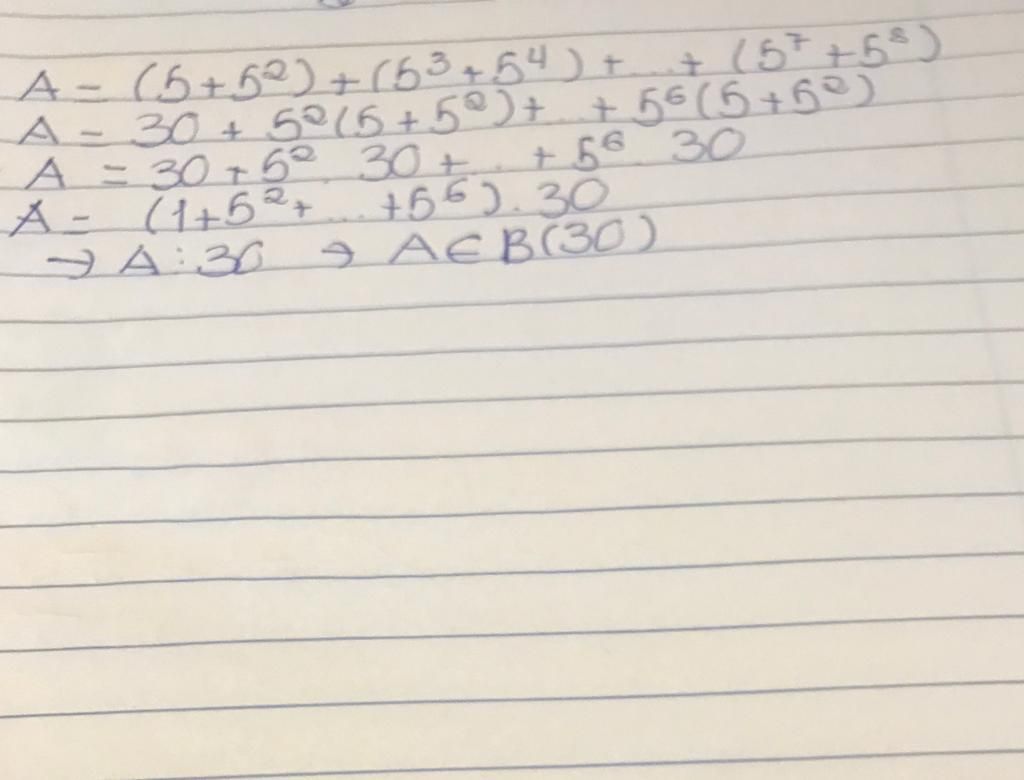 A = (5+5²)+(5³+5⁴)+...+(5⁷+5⁸)
A = 30 + 5²(5+5²)+...+5⁶(5+5²)
A = 30+5². 30+...+5⁶. 30
A = (1+5²+...+5⁶).30
→ A⋮30 → A∈B(30)